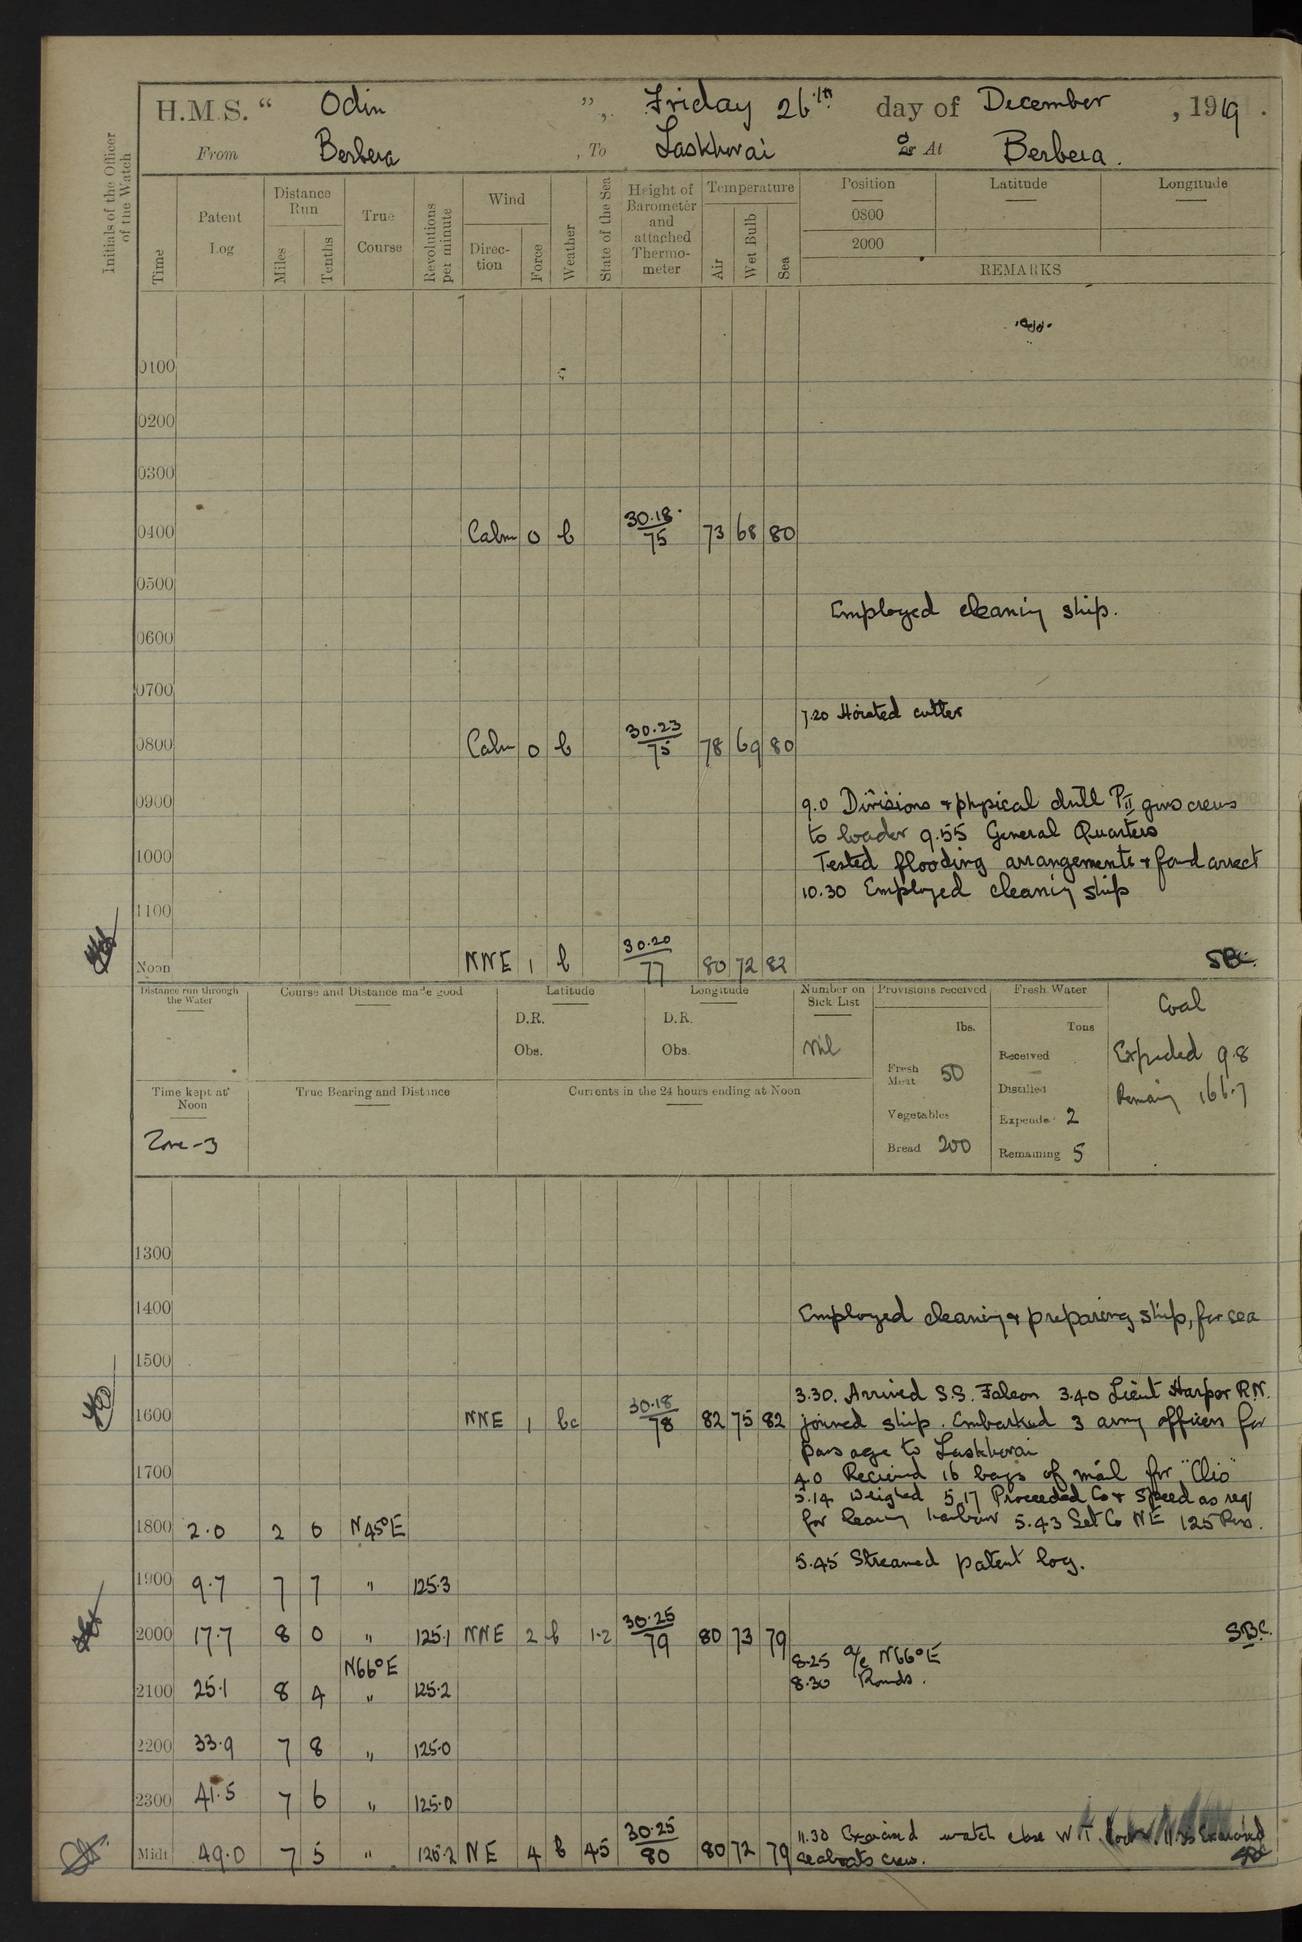 H.M.S. “ Odin ”, Friday 26th day of December, 1919.
From Berbera, To Laskhorai or At Berbera.
Initials of the Officer of the Watch
Time
Patent Log
Distance Run
Miles
Tenths
True Course
Revolutions per minute
Wind
Direction
Force
Weather
State of the Sea
Height of Barometer and attached Thermometer
Temperature
Air
Wet Bulb
Sea
Position Latitude Longitude
0800
2000
REMARKS
0100
0200
0300
0400 Calm 0 b 30.18 75 73 68 80
0500
Employed cleaning ship.
0600
0700
7.20 Hoisted cutter
0800 Calm 0 b 30.23 75 78 69 80
0900 9.0 Divisions + physical drill PII guns crews
to loader 9.55 General Quarters
1000 Tested flooding arrangements + found correct
10.30 Employed cleaning ship
1100
Noon NNE 1 b 30.20 77 80 72 82 SBC.
Distance run through the Water
Course and Distance made good
Latitude
D.R.
Obs.
Longitude
D.R.
Obs.
Number on Sick List
Nil
Provisions received
lbs.
Fresh Meat 50
Vegetables
Bread 200
Fresh Water
Tons
Received
Distilled
Expended 2
Remaining 5
Coal
Expended 9.8
Remaining 166.7
Time kept at Noon
Zone -3
True Bearing and Distance
Currents in the 24 hours ending at Noon
1300
1400 Employed cleaning + preparing ship, for sea
1500
3.30. Arrived S.S. Falcon 3.40 Lieut Harper R.N.
1600 NNE 1 bc 30.18 78 82 75 82 joined ship. Embarked 3 army officers for
passage to Laskhorai
1700 4.0 Received 16 bags of mail for "Clio"
5.14 Weighed 5.17 Proceeded Co + Speed as req
for leaving harbour 5.43 Set Co NE 125 Revs.
1800 2.0 2 0 N45°E
5.45 Streamed patent log.
1900 9.7 7 7 " 125.3
2000 17.7 8 0 " 125.1 NNE 2 b 1.2 30.25 79 80 73 79 SBC.
8.25 a/c N66°E
N66°E
8.30 Rounds.
2100 25.1 8 4 " 125.2
2200 33.9 7 8 " 125.0
2300 41.5 7 6 " 125.0
11.30 Exercised watch close W.T. doors. Exercised
Midt 49.0 7 5 " 125.2 NE 4 b 45 30.25 80 80 72 79 seaboats crew.